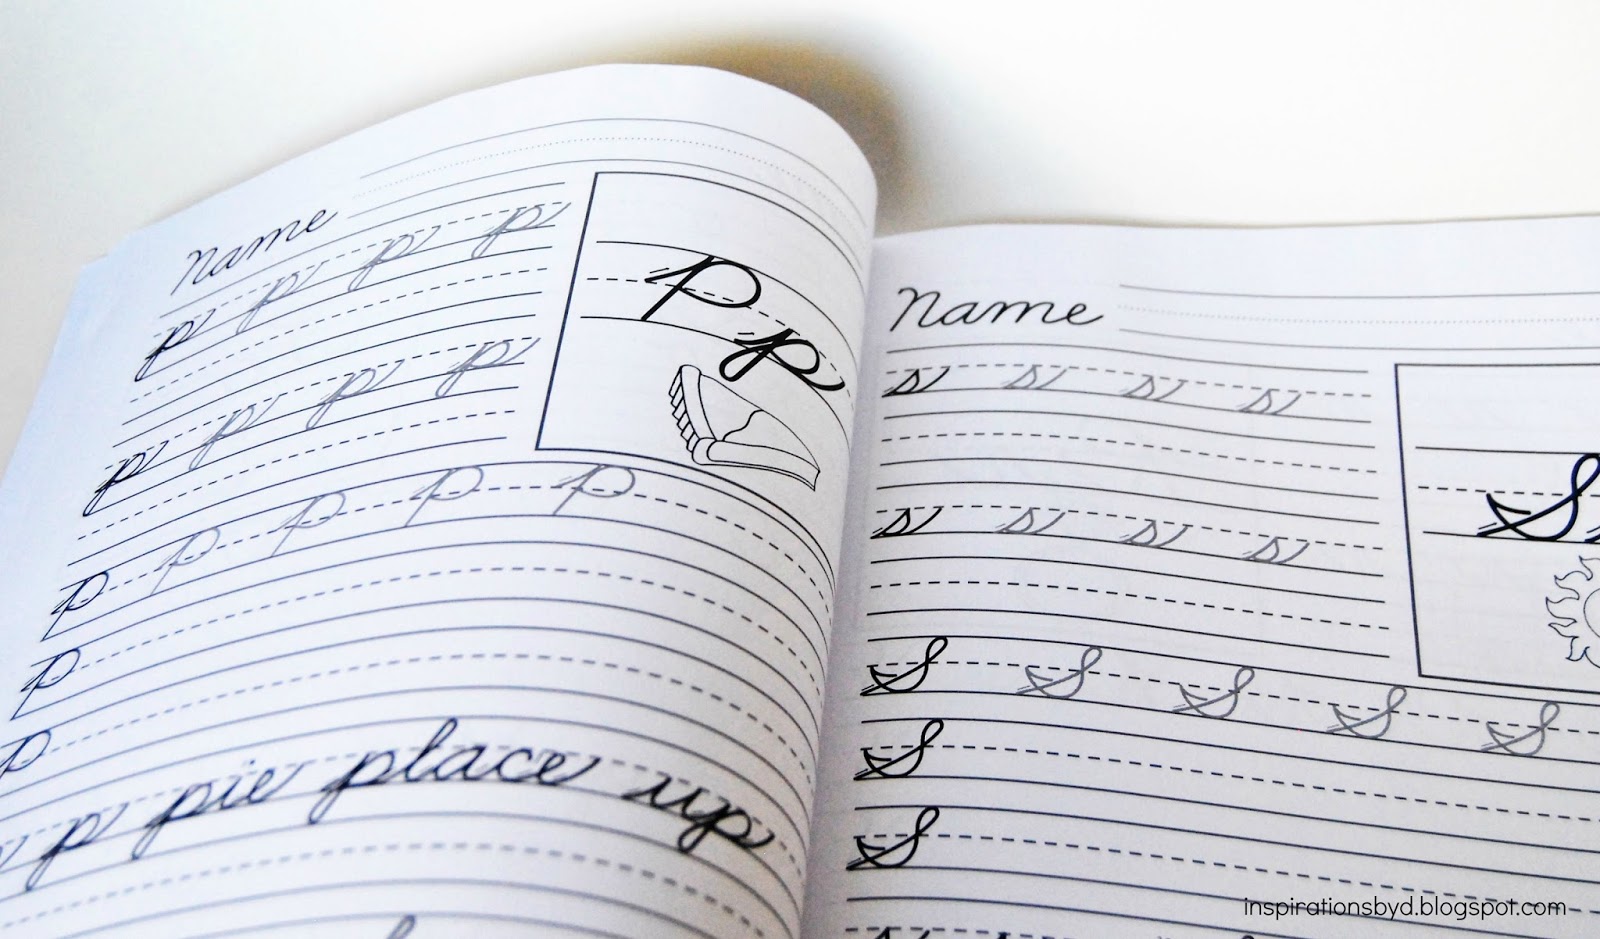 Name
p p p p
p p p p
P p
P P P P P
P
P
p pie place up
Name
s s s s
s s s s
S
S S S S S
S
S
inspirationsbyd.blogspot.com